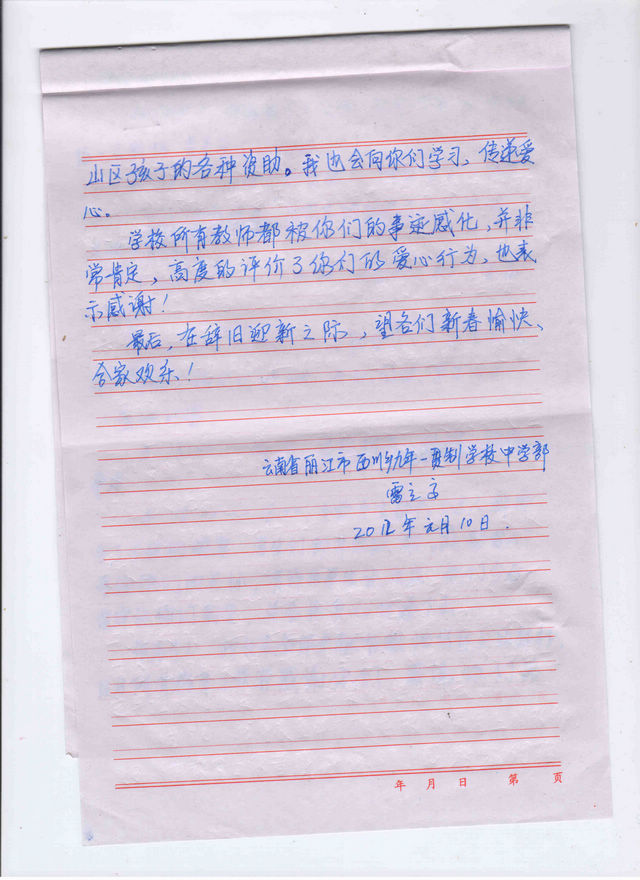 山区孩子的各种资助。我也会向你们学习，传递爱
心。
学校所有教师都被你们的事迹感化，并非
常肯定，高度的评价了你们的爱心行为，也表
示感谢！
最后，在辞旧迎新之际，望各们新春愉快、
合家欢乐！
云南省丽江市西川乡九年一贯制学校中学部
雷立
2012年元月10日.
年 月 日 第 页